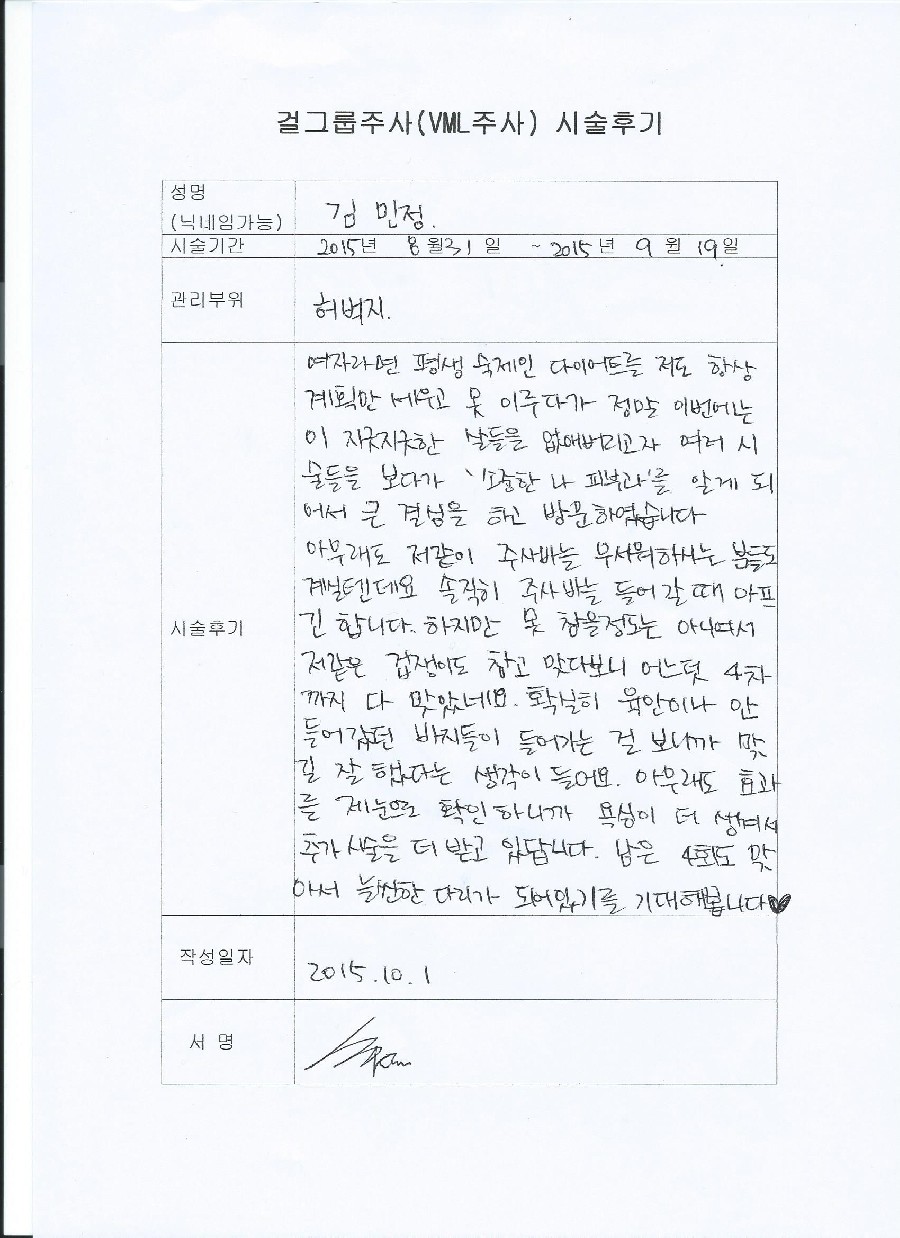 걸그룹주사(VML주사) 시술후기
성명
(닉네임가능)
김 민정.
시술기간
2015년 8월31일 ~ 2015년 9월 19일
관리부위
허벅지.
시술후기
여자라면 평생 숙제인 다이어트를 저도 항상
계획만 세우고 못 이루다가 정말 이번에는
이 지긋지긋한 살들을 없애버리고자 여러 시
술들을 보다가 '소중한 나 피부과'를 알게 되
어서 큰 결심을 하고 방문하였습니다
아무래도 저같이 주사바늘 무서워하시는 분들도
계실텐데요 솔직히 주사바늘 들어갈때 아프
긴 합니다. 하지만 못 참을정도는 아니여서
저같은 겁쟁이도 참고 맞다보니 어느덧 4차
까지 다 맞았네요. 확실히 육안이나 안
들어갔던 바지들이 들어가는 걸 보니까 맞
길 잘 했다는 생각이 들어요. 아무래도 효과
를 제눈으로 확인하니까 욕심이 더 생겨서
추가시술을 더 받고 있답니다. 남은 4회도 맞
아서 늘씬한 다리가 되어있기를 기대해봅니다♥
작성일자
2015.10.1
서 명